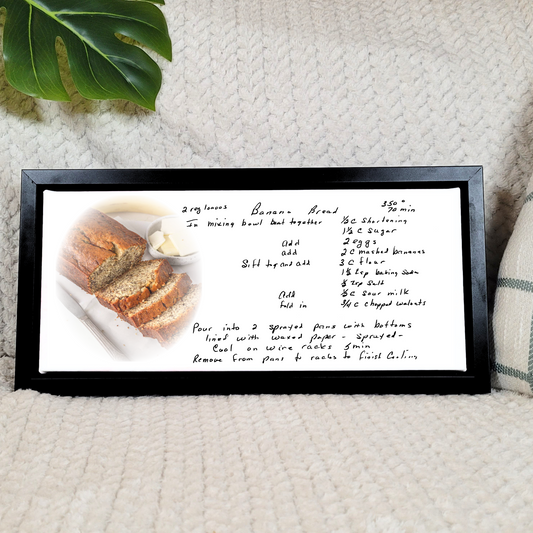 2 reg loaves Banana Bread 350°
70 min
In mixing bowl beat together ½ C Shortening
1½ C Sugar
Add 2 eggs
add 2 C mashed bananas
Sift tog and add 3 C flour
1½ tsp baking Soda
½ tsp Salt
Add ½ C Sour milk
Fold in ¾ C chopped walnuts
Pour into 2 sprayed pans with bottoms
lined with waxed paper - sprayed -
Cool on wire racks 5 min
Remove from pans to racks to finish Cooling